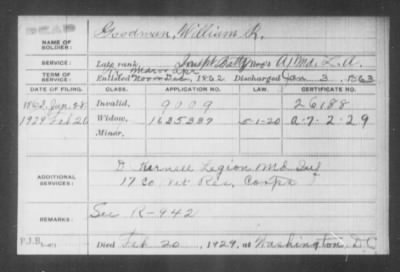 DEAD
NAME OF SOLDIER: Goodman, William R.
SERVICE: Late rank, Batty A, Md. L. A.
TERM OF SERVICE: Enlisted 1862 Discharged Jan 3, 1863
DATE OF FILING. CLASS. APPLICATION NO. LAW. CERTIFICATE NO.
1862, Jan. 28 Invalid, 9009 26188
1929 Feb 26 Widow, 1635337 5-1-20 a-7-2-29
Minor,
ADDITIONAL SERVICES: Purnell Legion Md Inf
17 Co. Vet Res. Corps
REMARKS: See R-942
P.I.B. Died Feb 20, 1929, at Washington D.C.